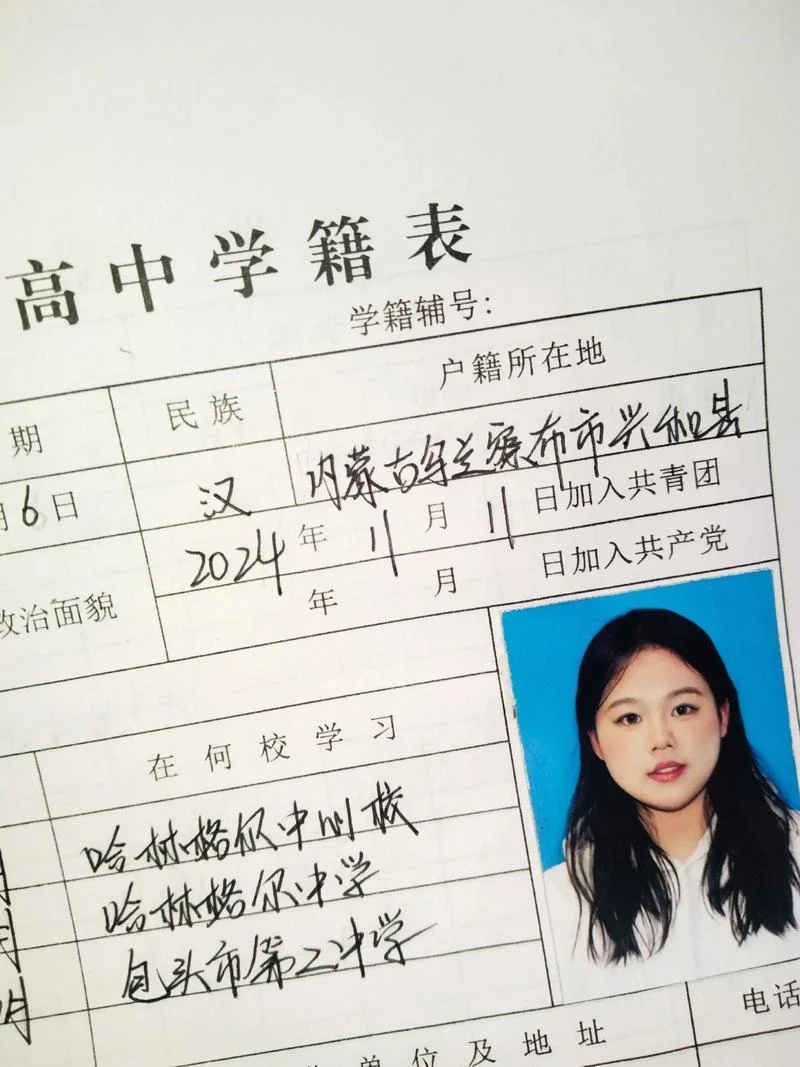 高中学籍表
学籍辅号：
期 民族 户籍所在地
月6日 汉 内蒙古乌兰察布市兴和县
政治面貌 2024年11月11日加入共青团
年 月 日加入共产党
在何校学习
哈林格尔中心校
哈林格尔中学
包头市第二中学
单位及地址 电话